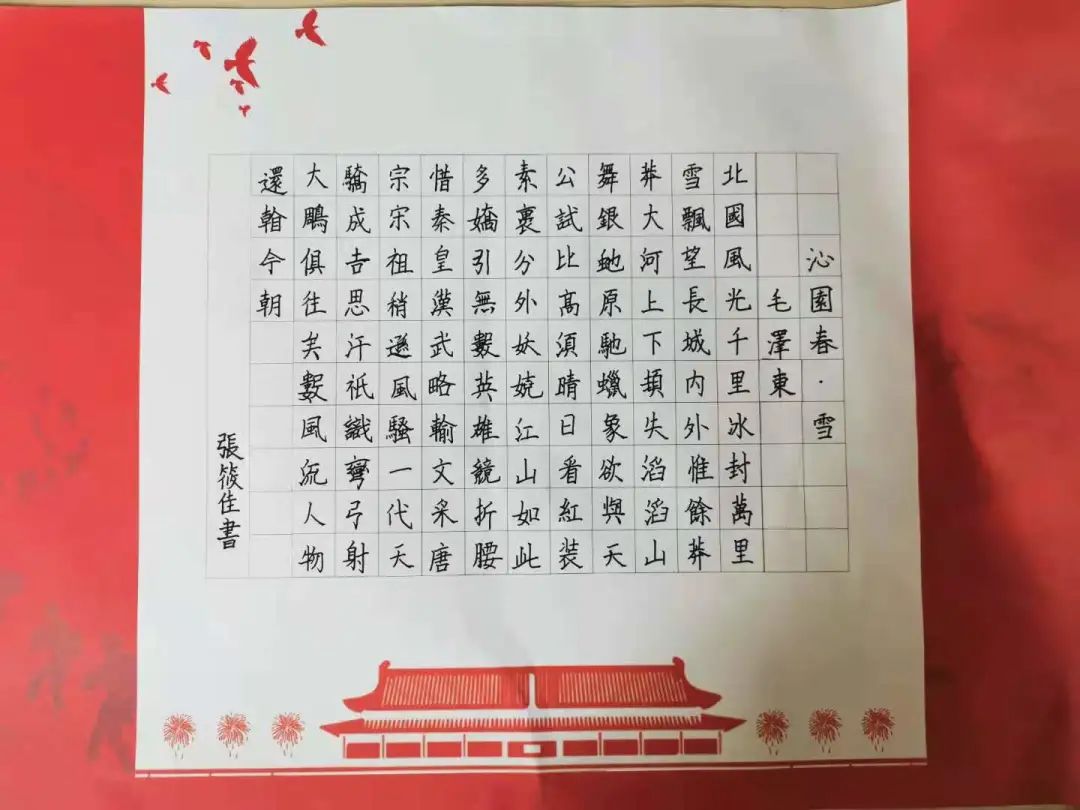 沁園春·雪
毛澤東
北國風光千里冰封萬里
雪飄望長城內外惟餘莽
莽大河上下頓失滔滔山
舞銀虵原馳蠟象欲與天
公試比高須晴日看紅装
素裹分外妖娆江山如此
多嬌引無數英雄競折腰
惜秦皇漢武略輸文采唐
宗宋祖稍遜風騷一代天
驕成吉思汗祇識彎弓射
大鵰俱往矣數風流人物
還今朝
張筱佳書